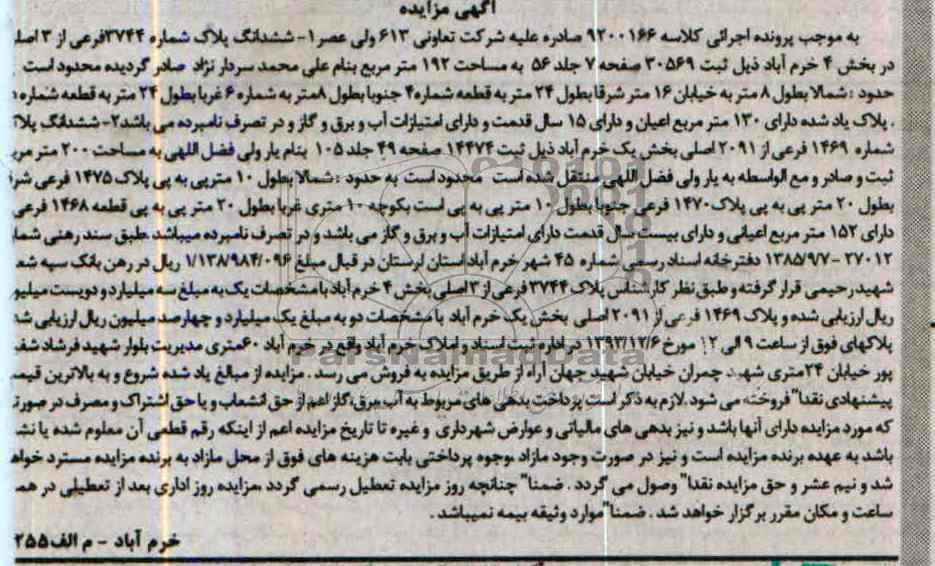 آگهی مزایده
به موجب پرونده اجرائی کلاسه ۹۲۰۰۱۶۶ صادره علیه شرکت تعاونی ۶۱۳ ولی عصر ۱- ششدانگ پلاک شماره ۳۷۴۴فرعی از ۳ اصلی
در بخش ۴ خرم آباد ذیل ثبت ۳۰۵۶۹ صفحه ۷ جلد ۵۶ به مساحت ۱۹۲ متر مربع بنام علی محمد سردار نژاد صادر گردیده محدود است
حدود : شمالا بطول ۸ متر به خیابان ۱۶ متر شرقا بطول ۲۴ متر به قطعه شماره۴ جنوبا بطول ۸متر به شماره ۶ غربا بطول ۲۴ متر به قطعه شماره
. پلاک یاد شده دارای ۱۳۰ متر مربع اعیان و دارای ۱۵ سال قدمت و دارای امتیازات آب و برق و گاز و در تصرف نامبرده می باشد۲- ششدانگ
شماره ۱۴۶۹ فرعی از ۲۰۹۱ اصلی بخش یک خرم آباد ذیل ثبت ۱۴۴۷۴ صفحه ۴۹ جلد ۱۰۵ بنام یار ولی فضل اللهی به مساحت ۲۰۰ متر
ثبت و صادر و مع الواسطه به یار ولی فضل اللهی منتقل شده است محدود است به حدود : شمالا بطول ۱۰ مترپی به پی پلاک ۱۴۷۵ فرعی
بطول ۲۰ متر پی به پی پلاک ۱۴۷۰ فرعی جنوبا بطول ۱۰ متر پی به پی است بکوچه ۱۰ متری غربا بطول ۲۰ متر پی به پی قطعه ۱۴۶۸ فرعی
دارای ۱۵۲ متر مربع اعیانی و دارای بیست سال قدمت دارای امتیازات آب و برق و گاز می باشد و در تصرف نامبرده میباشد .طبق سند رهنی
۲۷۰۱۲ - ۱۳۸۵/۹/۷ دفترخانه اسناد رسمی شماره ۴۵ شهر خرم آباد استان لرستان در قبال مبلغ ۱/۱۳۸/۹۸۴/۰۹۶ ریال در رهن بانک سپه
شهید رحیمی قرار گرفته و طبق نظر کارشناس پلاک ۳۷۴۴ فرعی از ۳ اصلی بخش ۴ خرم آباد با مشخصات یک به مبلغ سه میلیارد و دویست
ریال ارزیابی شده و پلاک ۱۴۶۹ فرعی از ۲۰۹۱ اصلی بخش یک خرم آباد با مشخصات دو به مبلغ یک میلیارد و چهارصد میلیون ریال ارزیابی
پلاکهای فوق از ساعت ۹ الی ۱۲ مورخ ۱۳۹۲/۱۲/۶ در اداره ثبت اسناد و املاک خرم آباد واقع در خرم آباد ۶۰متری مدیریت بلوار شهید فرشاد
پور خیابان ۲۴متری شهید چمران خیابان شهید جهان آراه از طریق مزایده به فروش می رسد . مزایده از مبالغ یاد شده شروع و به بالاترین
پیشنهادی نقدا" فروخته می شود .لازم به ذکر است پرداخت بدهی های مربوط به آب .برق.گاز اعم از حق انشعاب و یا حق اشتراک و مصرف در
که مورد مزایده دارای آنها باشد و نیز بدهی های مالیاتی و عوارض شهرداری و غیره تا تاریخ مزایده اعم از اینکه رقم قطعی آن معلوم شده یا
باشد به عهده برنده مزایده است و نیز در صورت وجود مازاد .وجوه پرداختی بابت هزینه های فوق از محل مازاد به برنده مزایده مسترد
شد و نیم عشر و حق مزایده نقدا" وصول می گردد . ضمنا" چنانچه روز مزایده تعطیل رسمی گردد .مزایده روز اداری بعد از تعطیلی در
ساعت و مکان مقرر برگزار خواهد شد . ضمنا"موارد وثیقه بیمه نمیباشد .
خرم آباد - م الف۲۵۵
ParsNamadData